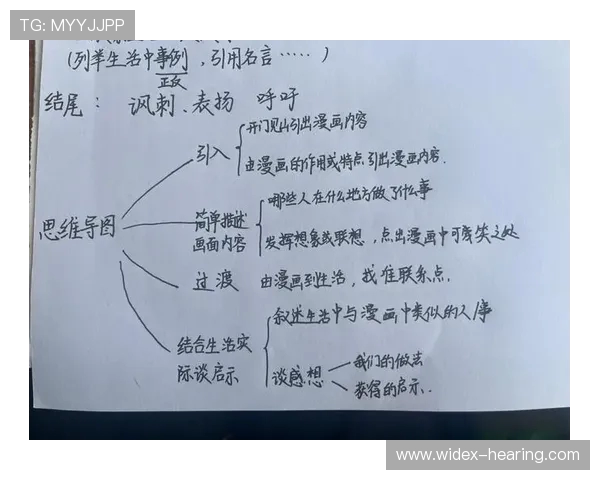 TG: MYYJJPP
(列举生活中事例，引用名言……)
正反
结尾： 讽刺、表扬 呼吁
思维导图
引入
开门见山引出漫画内容
由漫画的作用或特点引出漫画内容.
简单描述
画面内容
哪些人在什么地方做了什么事
发挥想象或联想，点出漫画中可笑之处
过渡 由漫画到生活，找准联系点.
结合生活实
际谈启示
叙述生活中与漫画中类似的人事
谈感想
我们的做法
获得的启示.
www.widex-hearing.com